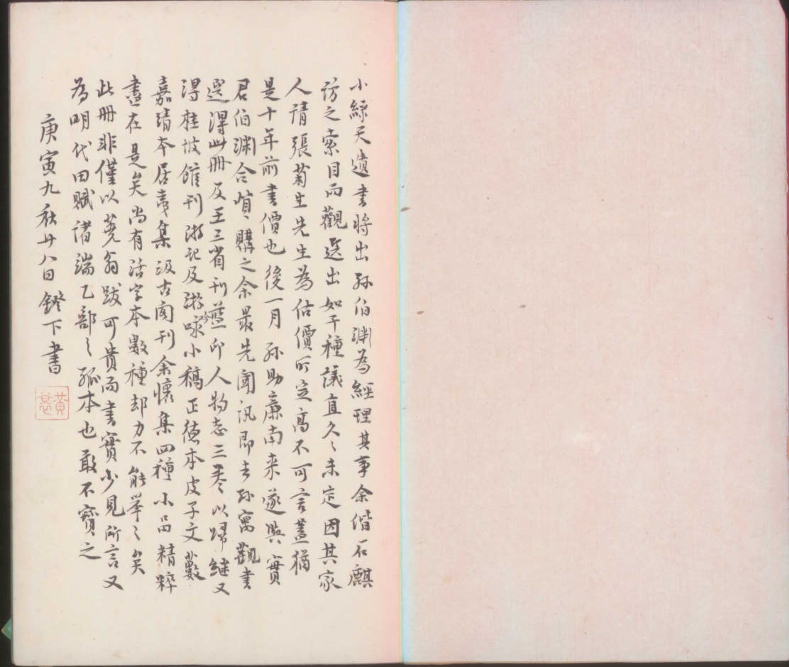 小綠天遺書將出孫伯淵為經理其事余偕石麒
訪之索目而觀選出如干種議直久〻未定因其家
人請張菊生先生為估價所定高不可言蓋猶
是十年前書價也後一月孫助廉南來遂與賓
君伯淵合慎購之余最先聞訊即去孫寓觀書
選得此冊及王三省刊藍印人物志三卷以歸繼又
得桂坡館刊游記及游喙小稿正德本皮子文藪
嘉靖本居夷集汲古閣刊余懷集四種小品精粹
盡在是矣尚有活字本數種却力不能舉之矣
此冊非僅以蕘翁跋可貴而書實少見所言又
為明代田賦諸端乙部之孤本也敢不寶之
庚寅九秋廿八日鐙下書
黃裳